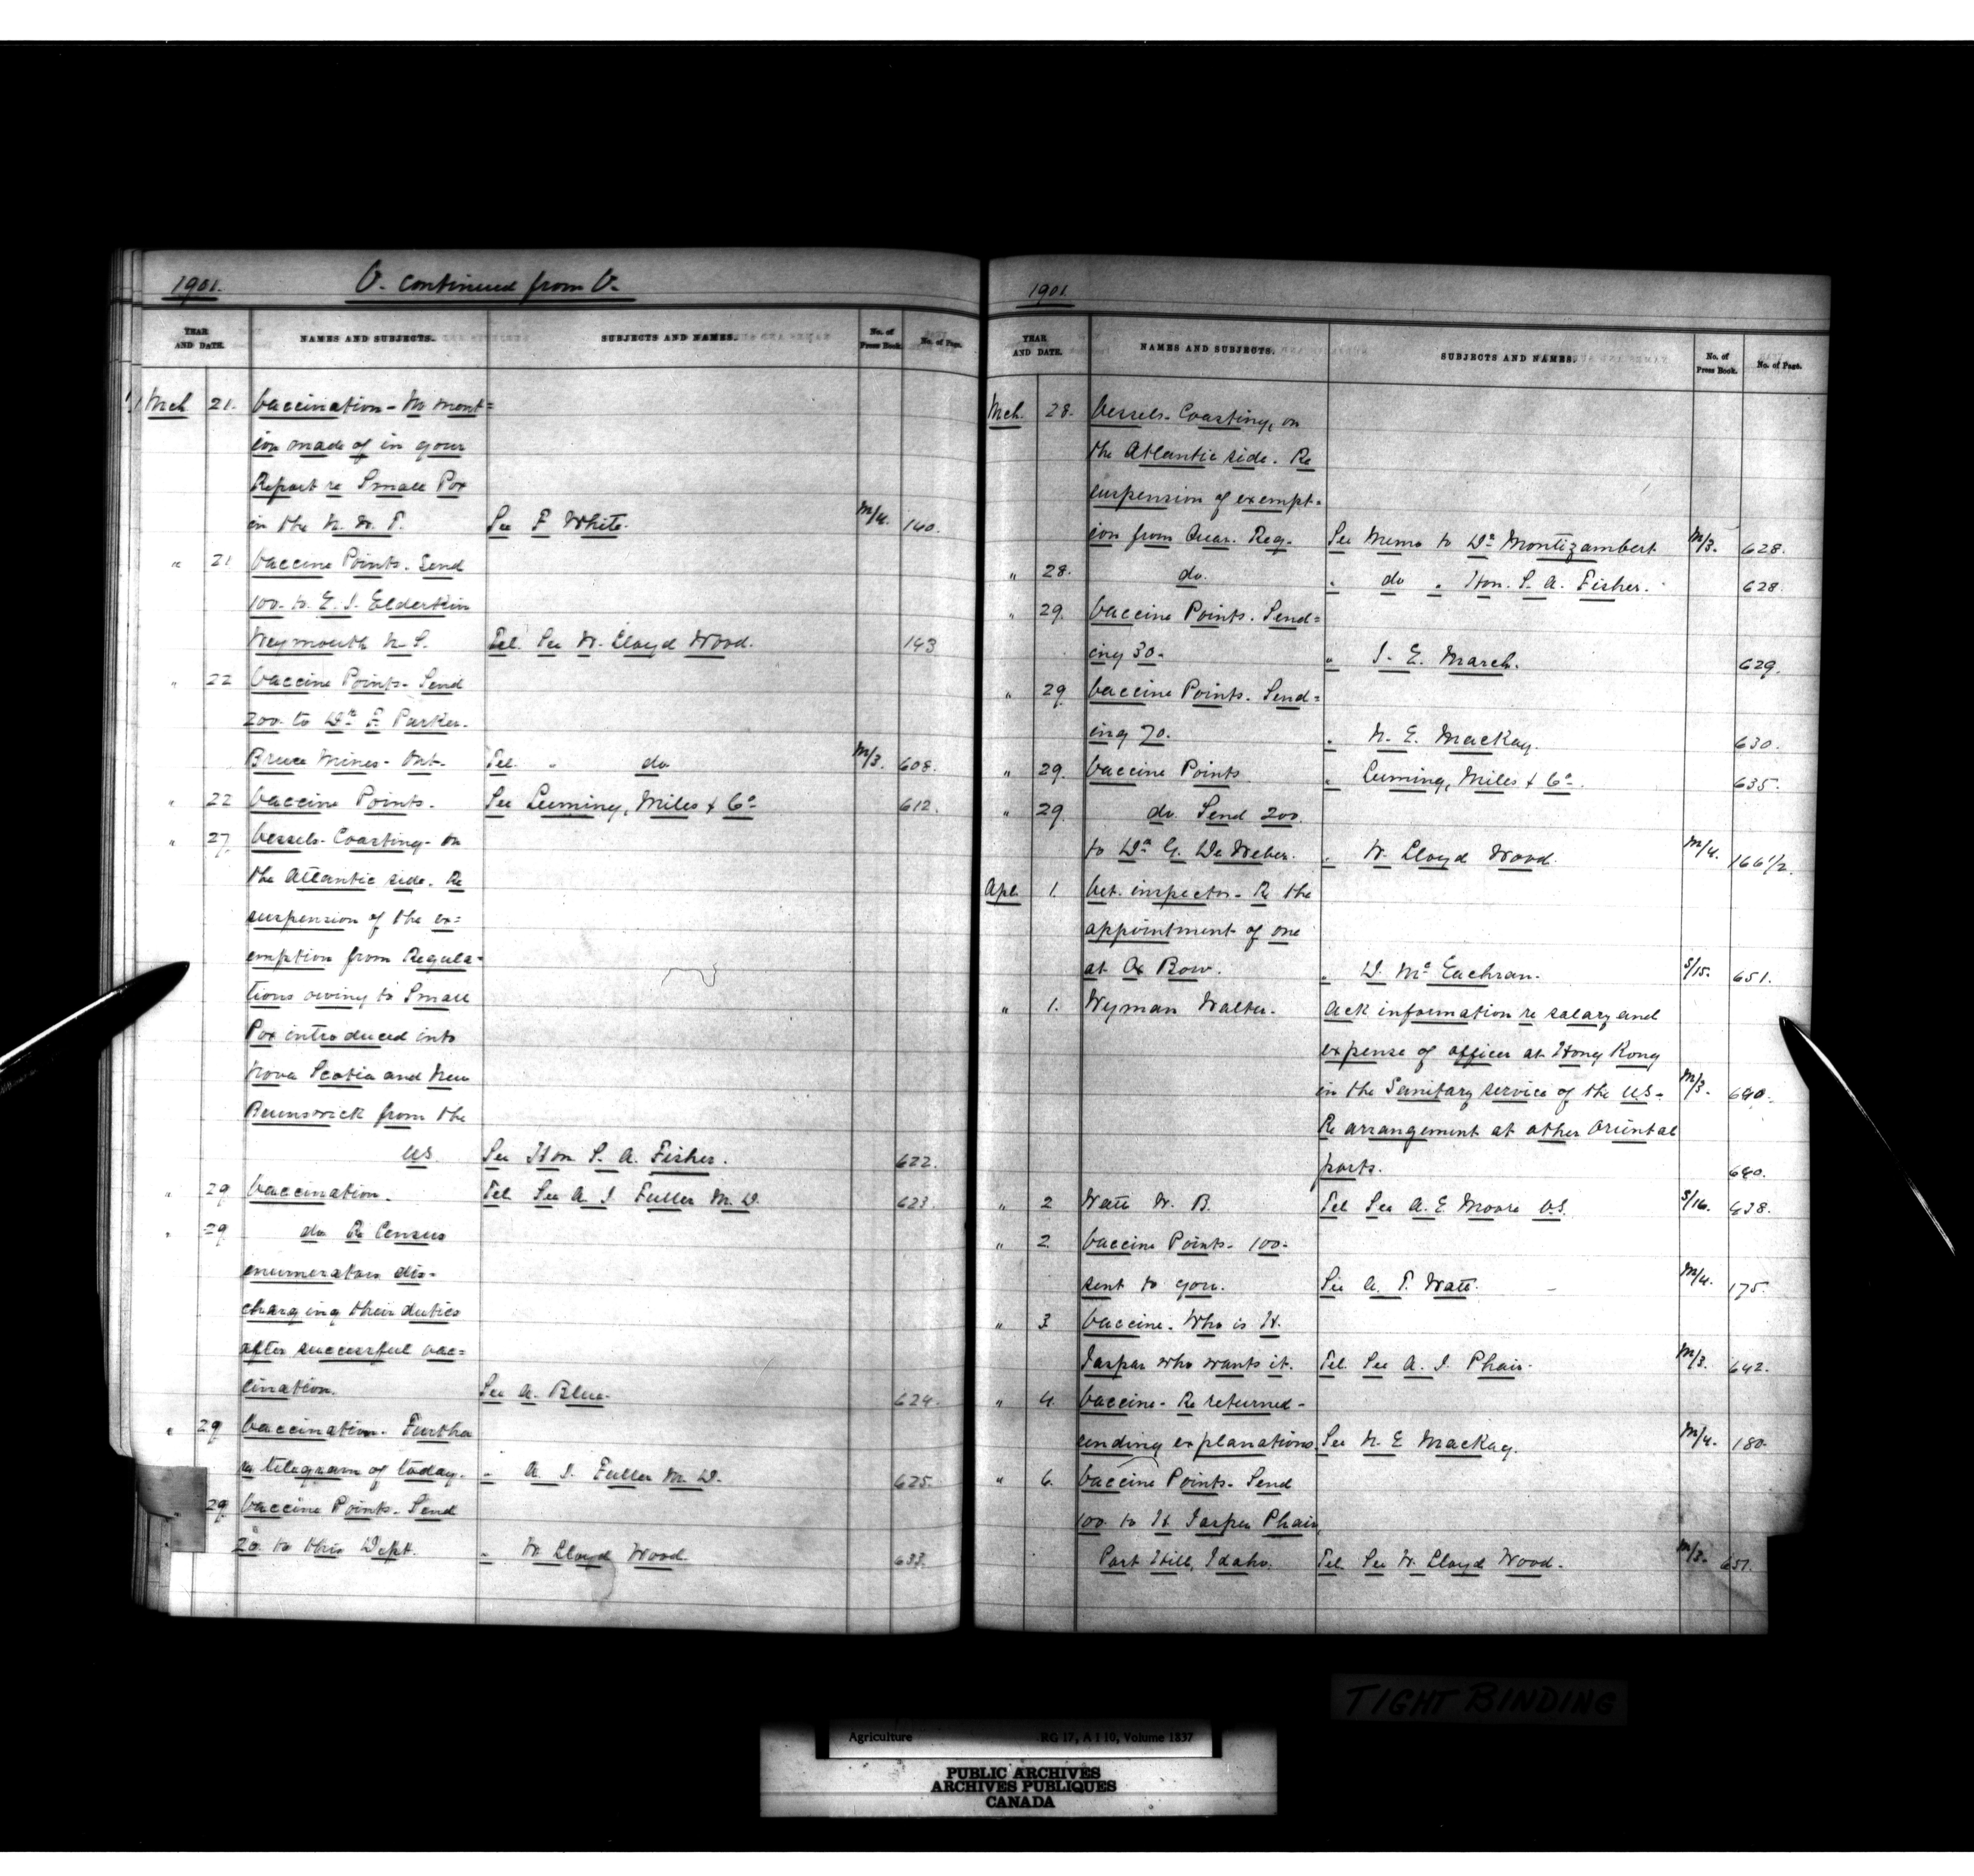 1901. V. continued from V.
YEAR AND DATE. NAMES AND SUBJECTS. SUBJECTS AND NAMES. No. of Press Book. No. of Page.
Mch 21. Vaccination - No ment=
ion made of in your
Report re Small Pox
in the N. W. T. See F. White. M/4. 140.
" 21 Vaccine Points. Send
100 to E. J. Elderkin
Weymouth N. S. Tel. See W. Lloyd Wood. 143
" 22 Vaccine Points. Send
200 to Dr. F. Parker.
Bruce Mines - Ont. Tel. " do M/3. 608.
" 22 Vaccine Points. See Leeming, Miles & Co. 612.
" 27 Vessels - Coasting - on
the Atlantic side. Re
suspension of the ex=
emption from Regula=
tions owing to Small
Pox introduced into
Nova Scotia and New
Brunswick from the
US. See Hon S. A. Fisher. 622.
" 29 Vaccination. Tel See A. J. Fuller M. D. 623.
" 29 do Re Census
enumerators dis-
charging their duties
after successful vac=
cination. See A. Blue. 624.
" 29 Vaccination. Further
re telegram of today. " A. J. Fuller M. D. 625.
" 29 Vaccine Points. Send
20 to this Dept. " W. Lloyd Wood. 633.
1901.
YEAR AND DATE. NAMES AND SUBJECTS. SUBJECTS AND NAMES. No. of Press Book. No. of Page.
Mch. 28. Vessels - Coasting, on
the Atlantic side. Re
suspension of exempt-
ion from Quar. Reg. See Memo to Dr. Montizambert M/3. 628.
" 28. do. " do " Hon. S. A. Fisher. 628
" 29. Vaccine Points. Send=
ing 30. " J. E. March. 629.
" 29 Vaccine Points. Send=
ing 70. " N. E. MacKay. 630.
" 29. Vaccine Points " Leeming, Miles & Co. 635.
" 29 do. Send 200
to Dr. G. De Weber. " W. Lloyd Wood. M/4. 166 1/2.
Apl. 1. Vet. inspector - Re the
appointment of one
at Ox Bow. " D. McEachran. S/15. 651.
" 1. Wyman Walter. Ack information re salary and
expense of officer at Hong Kong
in the Sanitary service of the US. M/3. 640.
Re arrangement at other Oriental
ports. 640.
" 2 Watt W. B. Tel See A. E. Moore V.S. S/16. 638.
" 2 Vaccine Points - 100
sent to you. See A. T. Watt. M/4. 175.
" 3 Vaccine. Who is H.
Jasper who wants it. Tel. See A. J. Phair. M/3. 642.
" 4 Vaccine - Re returned -
sending explanations. See N. E MacKay. M/4. 180.
" 6. Vaccine Points. Send
100 to H. Jasper Phair,
Port Hill, Idaho. Tel. See W. Lloyd Wood. M/3. 651.
TIGHT BINDING
Agriculture RG 17, A I 10, Volume 1837
PUBLIC ARCHIVES
ARCHIVES PUBLIQUES
CANADA